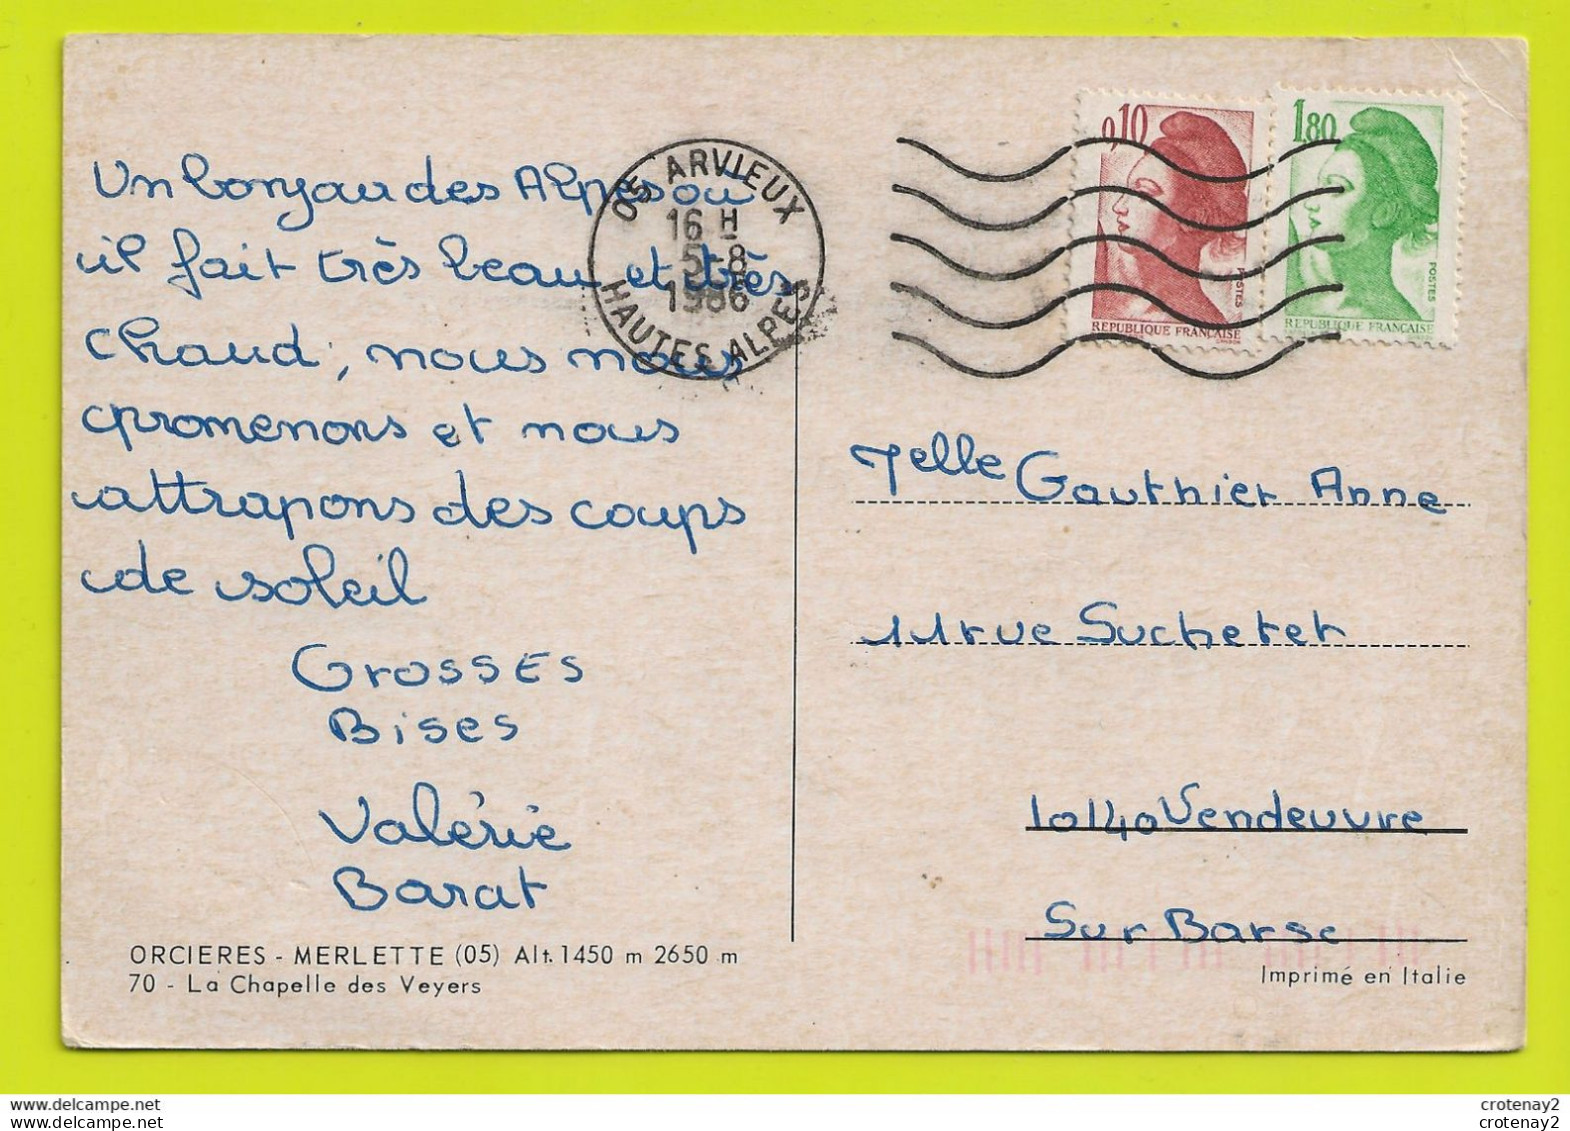 Un bonjour des Alpes où
il fait très beau et très
chaud, nous nous
promenons et nous
attrapons des coups
de soleil
Grosses
Bises
Valérie
Barat
ORCIERES - MERLETTE (05) Alt. 1450 m 2650 m
70 - La Chapelle des Veyers
05 ARVIEUX
16 H
5-8
1986
HAUTES ALPES
0,10
POSTES
REPUBLIQUE FRANÇAISE
1,80
POSTES
REPUBLIQUE FRANÇAISE
Melle Gauthier Anne
11 rue Suchetet
10140 Vendeuvre
Sur Barse
Imprimé en Italie
crotenay2
crotenay2
crotenay2
crotenay2